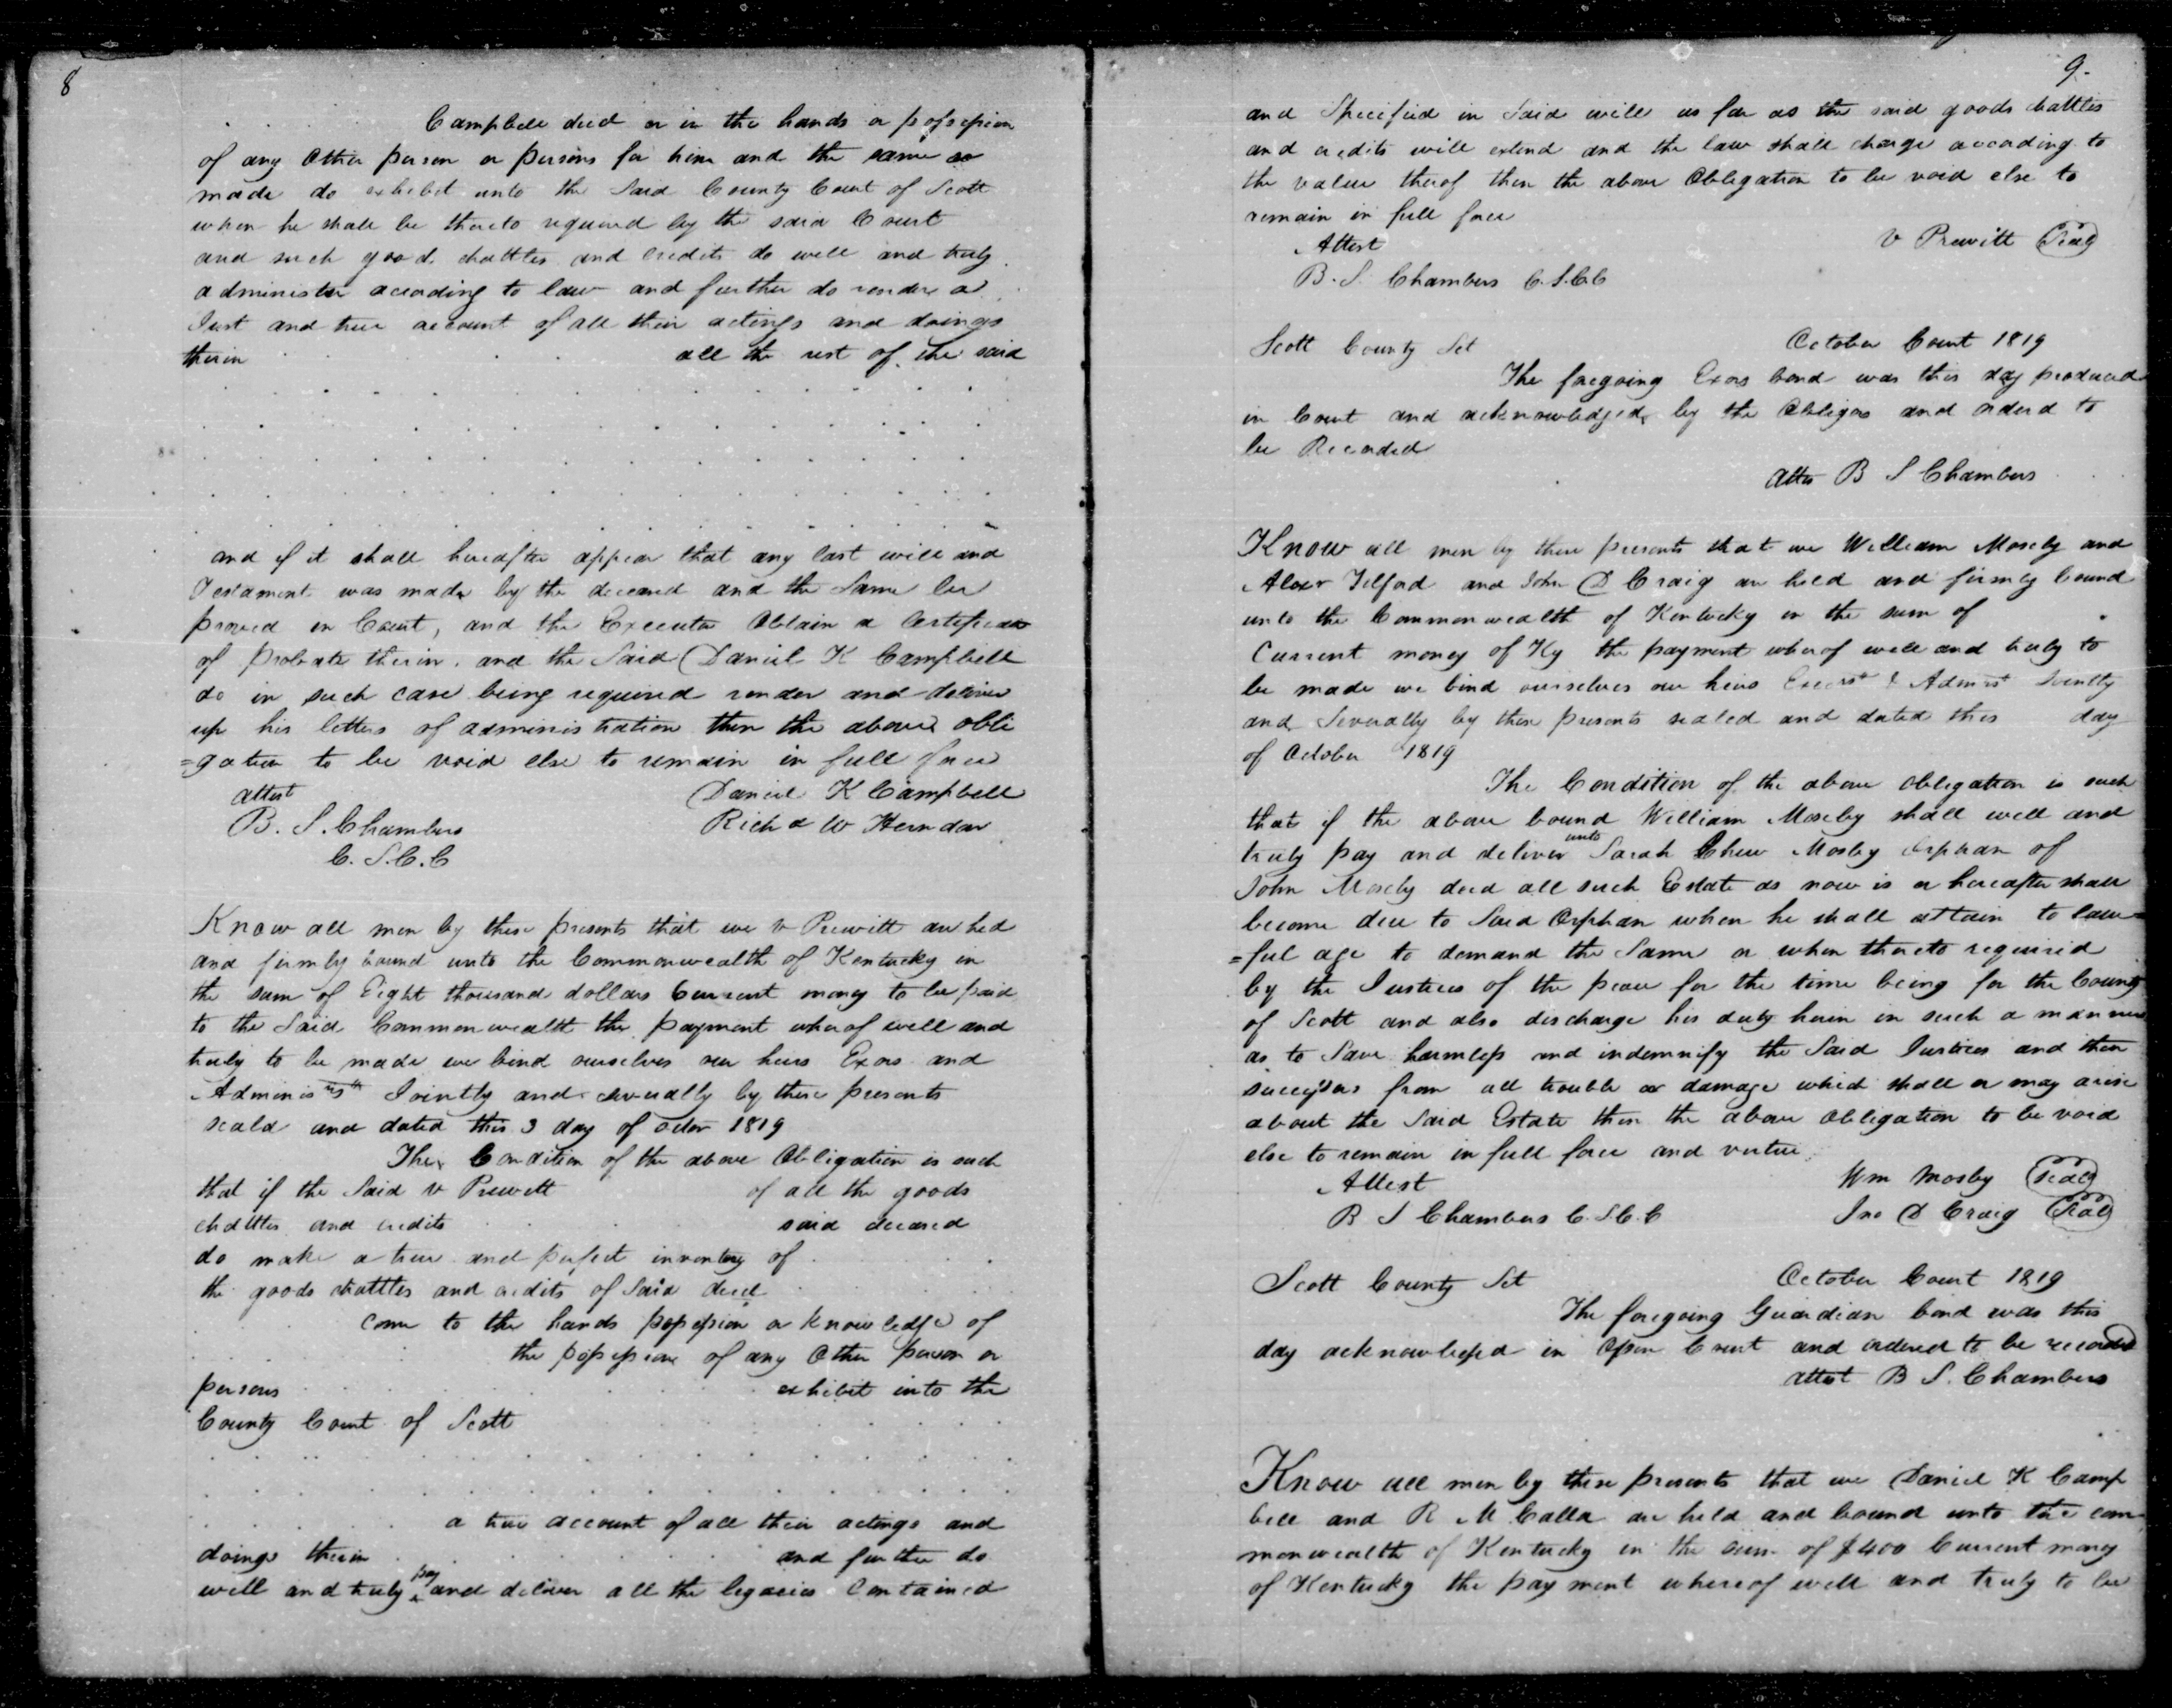 8
Campbell decd or in the hands or possession
of any Other person or persons for him and the same so
made do exhibit unto the Said County Court of Scott
when he shall be thereto required by the said Court
and such goods chattles and credits do well and truly
administer according to law and further do render a
Just and true account of all their actings and doings
therin all the rest of the said
and if it shall hereafter appear that any last will and
Testament was made by the deceased and the Same be
proved in Court, and the Executor Obtain a Certificate
of probate therin. and the Said Daniel K Campbell
do in such case being required render and deliver
up his letters of administration then the above obli
=gation to be void else to remain in full force
attest Daniel K Campbell
B. S. Chambers Richd W Herndon
C. S. C. C
Know all men by these presents that we V Prewitt are held
and firmly bound unto the Commonwealth of Kentucky in
the sum of Eight thousand dollars Current money to be paid
to the Said Commonwealth the payment wherof well and
truly to be made we bind ourselves our heirs Exors and
Jointly and severally by these presents
seald and dated this 3 day of octor 1819
The Condition of the above Obligation is such
that if the Said V Prewett of all the goods
chattles and credits said deceased
do make a true and perfect inventory of
the goods chattles and credits of Said decd
come to the hands possession or knowledge of
the possession of any Other person or
persons exhibit into the
County Court of Scott
a true account of all their actings and
doings therin and further do
well and truly pay and deliver all the legacies Contained
9.
and Specified in Said will as far as the said goods chattles
and credits will extend and the law shall charge according to
the value therof then the above Obligation to be void else to
remain in full force
Attest V Prewitt Seal
B. S. Chambers C. S. C. C
Scott County Sct October Court 1819
The foregoing Exors bond was this day produced
in Court and acknowledged by the Obligors and orderd to
be Recorded
Attes B S Chambers
Know all men by these presents that we William Mosely and
Alexr Telford and John D Craig are held and firmly bound
unto the Commonwealth of Kentucky in the sum of
Current money of Ky the payment wherof well and truly to
be made we bind ourselves our heirs & Jointly
and Severally by these presents sealed and dated this day
of October 1819
The Condition of the above obligation is such
that if the above bound William Moseby shall well and
truly pay and deliver unto Sarah Chew Mosby Orphan of
John Moseby decd all such Estate as now is or hereafter shall
become due to Said Orphan when he shall attain to law=
=ful age to demand the Same or when thereto required
by the Justices of the peace for the time being for the County
of Scott and also discharge his duty herin in such a manner
as to Save harmless and indemnify the Said Justices and their
successors from all trouble or damage which shall or may arise
about the Said Estate then the above obligation to be void
else to remain in full force and virtue
Attest Wm Mosby Seal
B S Chambers C. S. C. C Jno D Craig Seal
Scott County Sct October Court 1819
The foregoing Guardian bond was this
day acknowledged in Open Court and ordered to be recorded
attest B S. Chambers
Know all men by these presents that we Daniel K Camp
bell and R M Calla are held and bound unto the com
monwealth of Kentucky in the sum of $400 Current money
of Kentucky the payment whereof well and truly to be